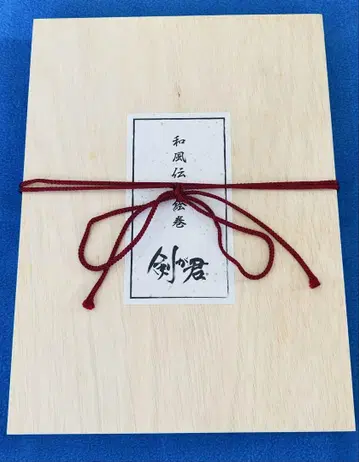 和風伝絵巻
剣が君